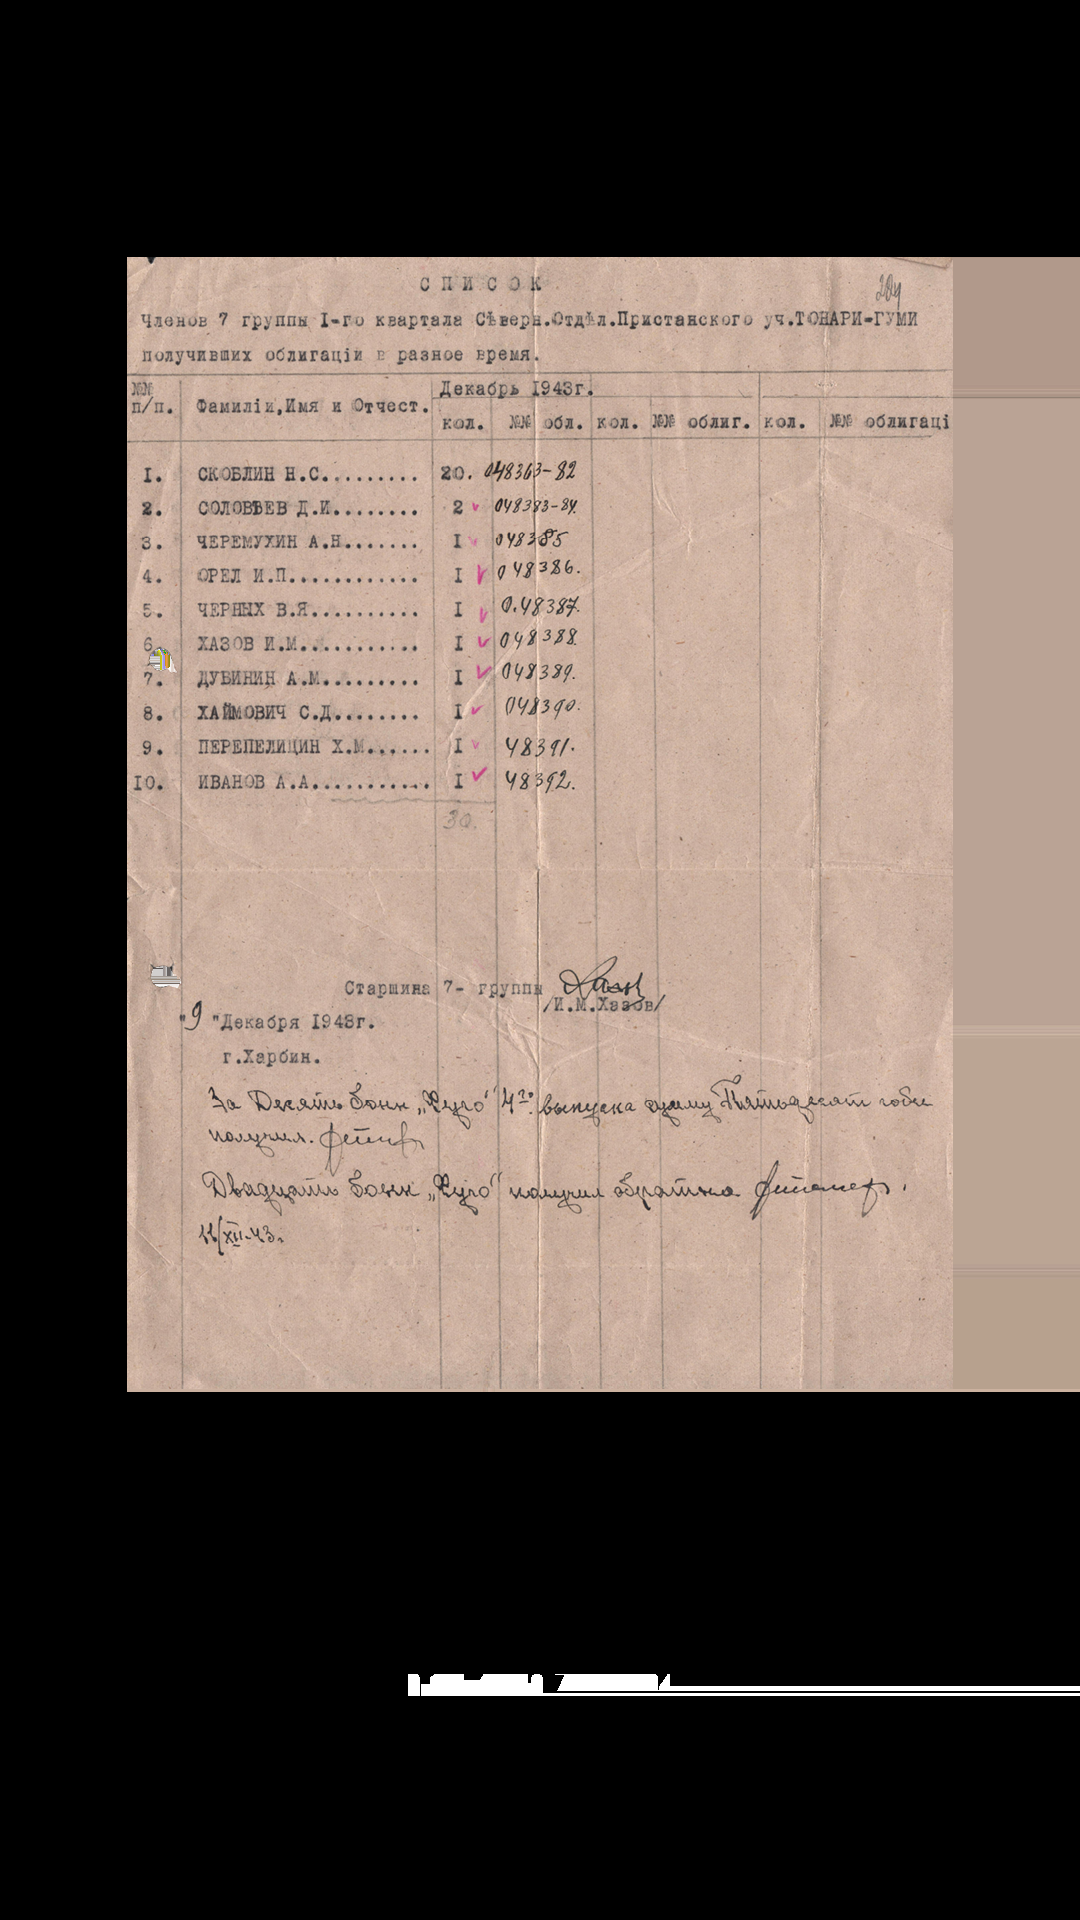 204
СПИСОК
Членов 7 группы I-го квартала Сѣверн.Отдѣл.Пристанского уч.ТОНАРИ-ГУМИ
получивших облигаціи в разное время.
№№ п/п. Фамиліи,Имя и Отчест. Декабрь 1943г.
кол. №№ обл. кол. №№ облиг. кол. №№ облигаці
I. СКОБЛИН Н.С......... 20. 048363-82
2. СОЛОВЬЕВ Д.И........ 2 048383-84.
3. ЧЕРЕМУХИН А.Н....... I 048385
4. ОРЕЛ И.П............ I 048386.
5. ЧЕРНЫХ В.Я.......... I 0.48387.
6. ХАЗОВ И.М........... I 048388.
7. ДУБИНИН А.М......... I 048389.
8. ХАЙМОВИЧ С.Д........ I 048390.
9. ПЕРЕПЕЛИЦИН Х.М...... I 48391.
IO. ИВАНОВ А.А........... I 48392.
30.
Старшина 7- группы
/И.М.Хазов/
"9 "Декабря 1943г.
г.Харбин.
За Десять бонн „Фуго" 4го. выпуска сумму Пятьдесят гоби
получил.
Двадцать бонн „Фуго" получил обратно
11/XII-43.